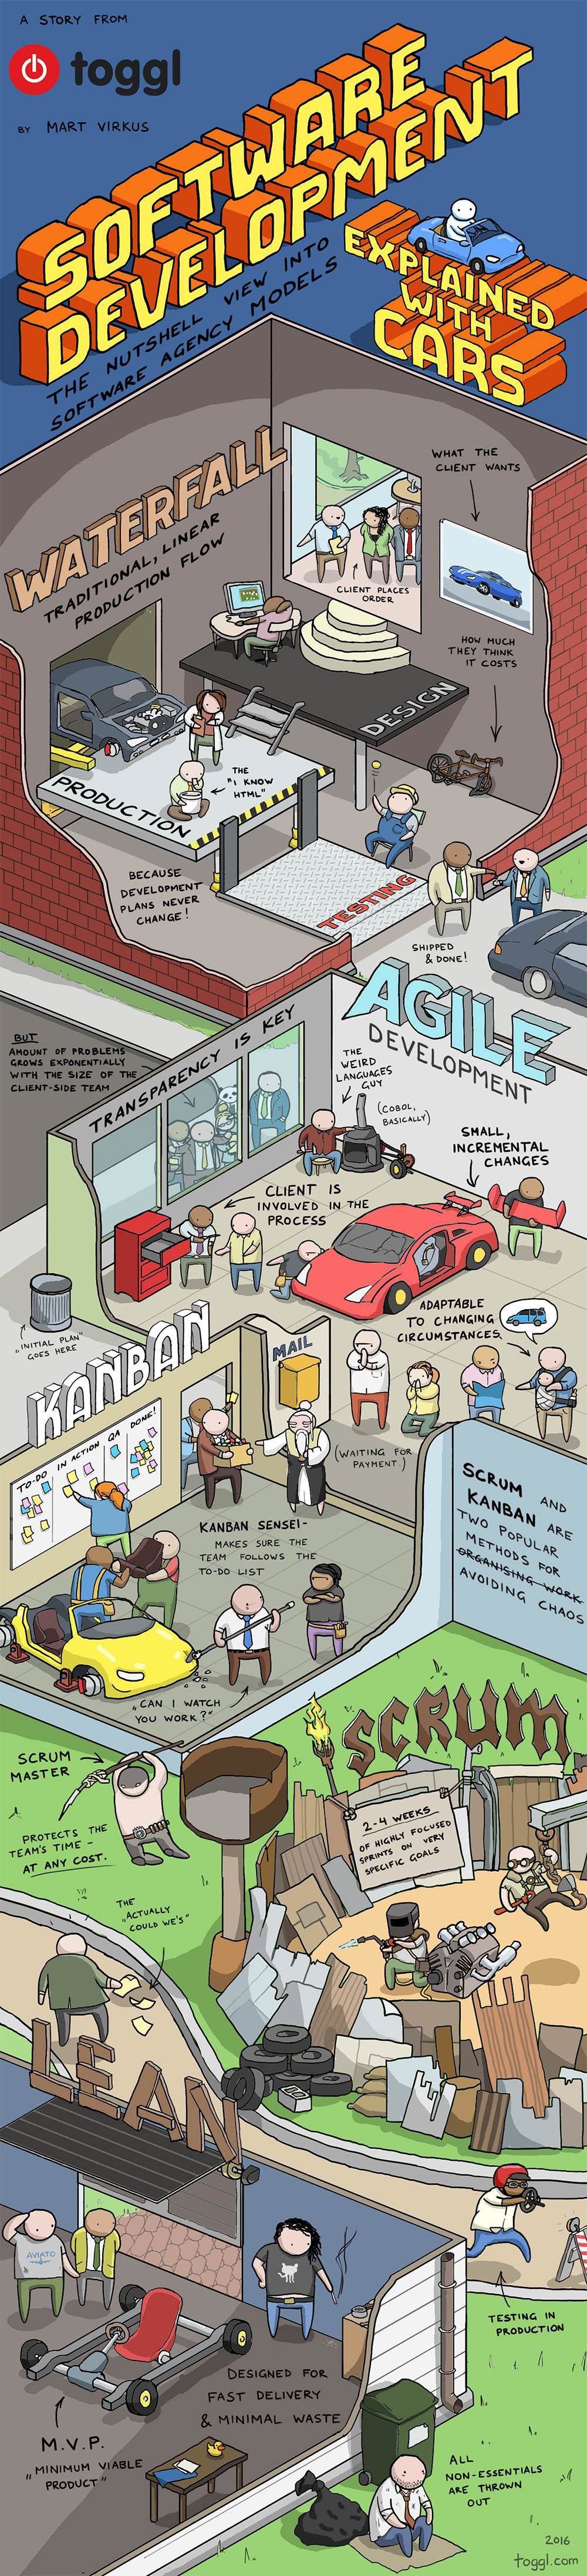 A STORY FROM
toggl
BY MART VIRKUS
SOFTWARE
DEVELOPMENT
EXPLAINED
WITH
CARS
THE NUTSHELL VIEW INTO
SOFTWARE AGENCY MODELS
WATERFALL
TRADITIONAL, LINEAR
PRODUCTION FLOW
WHAT THE
CLIENT WANTS
CLIENT PLACES
ORDER
HOW MUCH
THEY THINK
IT COSTS
DESIGN
PRODUCTION
THE
"I KNOW
HTML"
TESTING
BECAUSE
DEVELOPMENT
PLANS NEVER
CHANGE!
SHIPPED
& DONE!
AGILE
DEVELOPMENT
BUT
AMOUNT OF PROBLEMS
GROWS EXPONENTIALLY
WITH THE SIZE OF THE
CLIENT-SIDE TEAM
TRANSPARENCY IS KEY
THE
WEIRD
LANGUAGES
GUY
(COBOL,
BASICALLY)
SMALL,
INCREMENTAL
CHANGES
CLIENT IS
INVOLVED IN THE
PROCESS
"INITIAL PLAN"
GOES HERE
ADAPTABLE
TO CHANGING
CIRCUMSTANCES
KANBAN
MAIL
TO-DO
IN ACTION
QA
DONE!
(WAITING FOR
PAYMENT)
KANBAN SENSEI-
MAKES SURE THE
TEAM FOLLOWS THE
TO-DO LIST
SCRUM AND
KANBAN ARE
TWO POPULAR
METHODS FOR
ORGANISING WORK
AVOIDING CHAOS
"CAN I WATCH
YOU WORK?"
SCRUM
SCRUM
MASTER
PROTECTS THE
TEAM'S TIME -
AT ANY COST.
2-4 WEEKS
OF HIGHLY FOCUSED
SPRINTS ON VERY
SPECIFIC GOALS
THE
"ACTUALLY
COULD WE'S"
LEAN
AVIATO
TESTING IN
PRODUCTION
DESIGNED FOR
FAST DELIVERY
& MINIMAL WASTE
M.V.P.
"MINIMUM VIABLE
PRODUCT"
ALL
NON-ESSENTIALS
ARE THROWN
OUT
2016
toggl.com